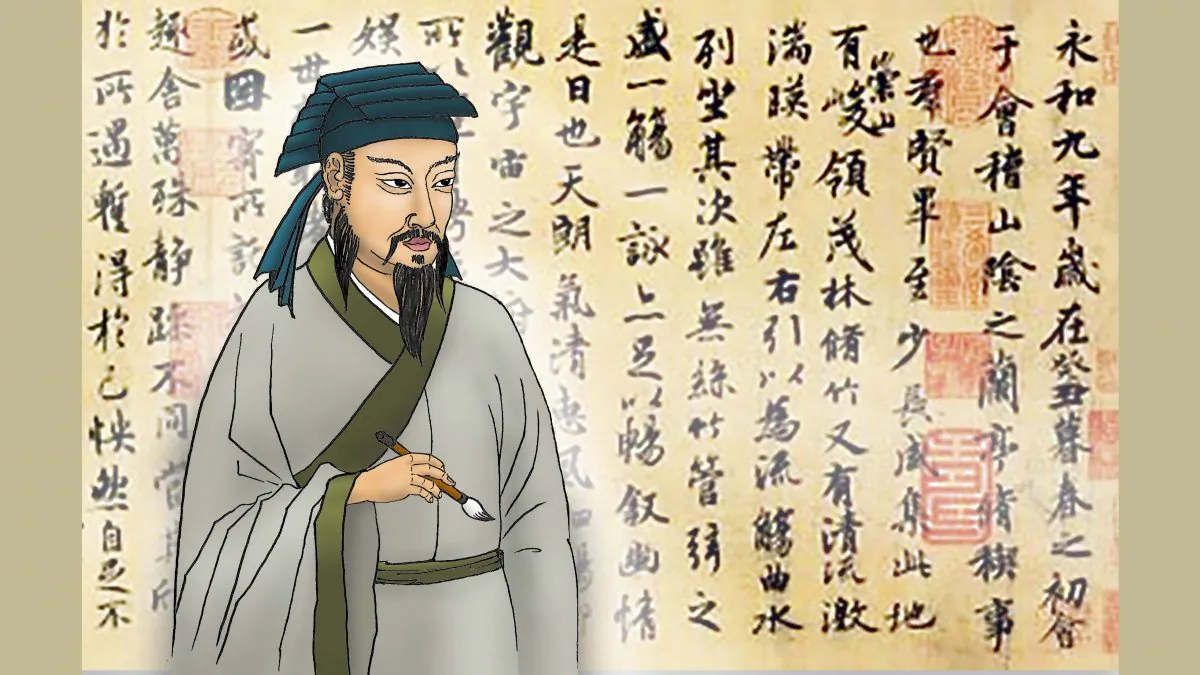 永和九年歲在癸丑暮春之初會
于會稽山陰之蘭亭脩稧事
也羣賢畢至少長咸集此地
有崇山峻領茂林脩竹又有清流激
湍暎帶左右引以為流觴曲水
列坐其次雖無絲竹管弦之
盛一觴一詠亦足以暢敘幽情
是日也天朗氣清惠風和暢仰
觀宇宙之大俯
所以
娛
一世
或因寄所託
趣舍萬殊靜躁不同當其欣
於所遇暫得於己怏然自足不